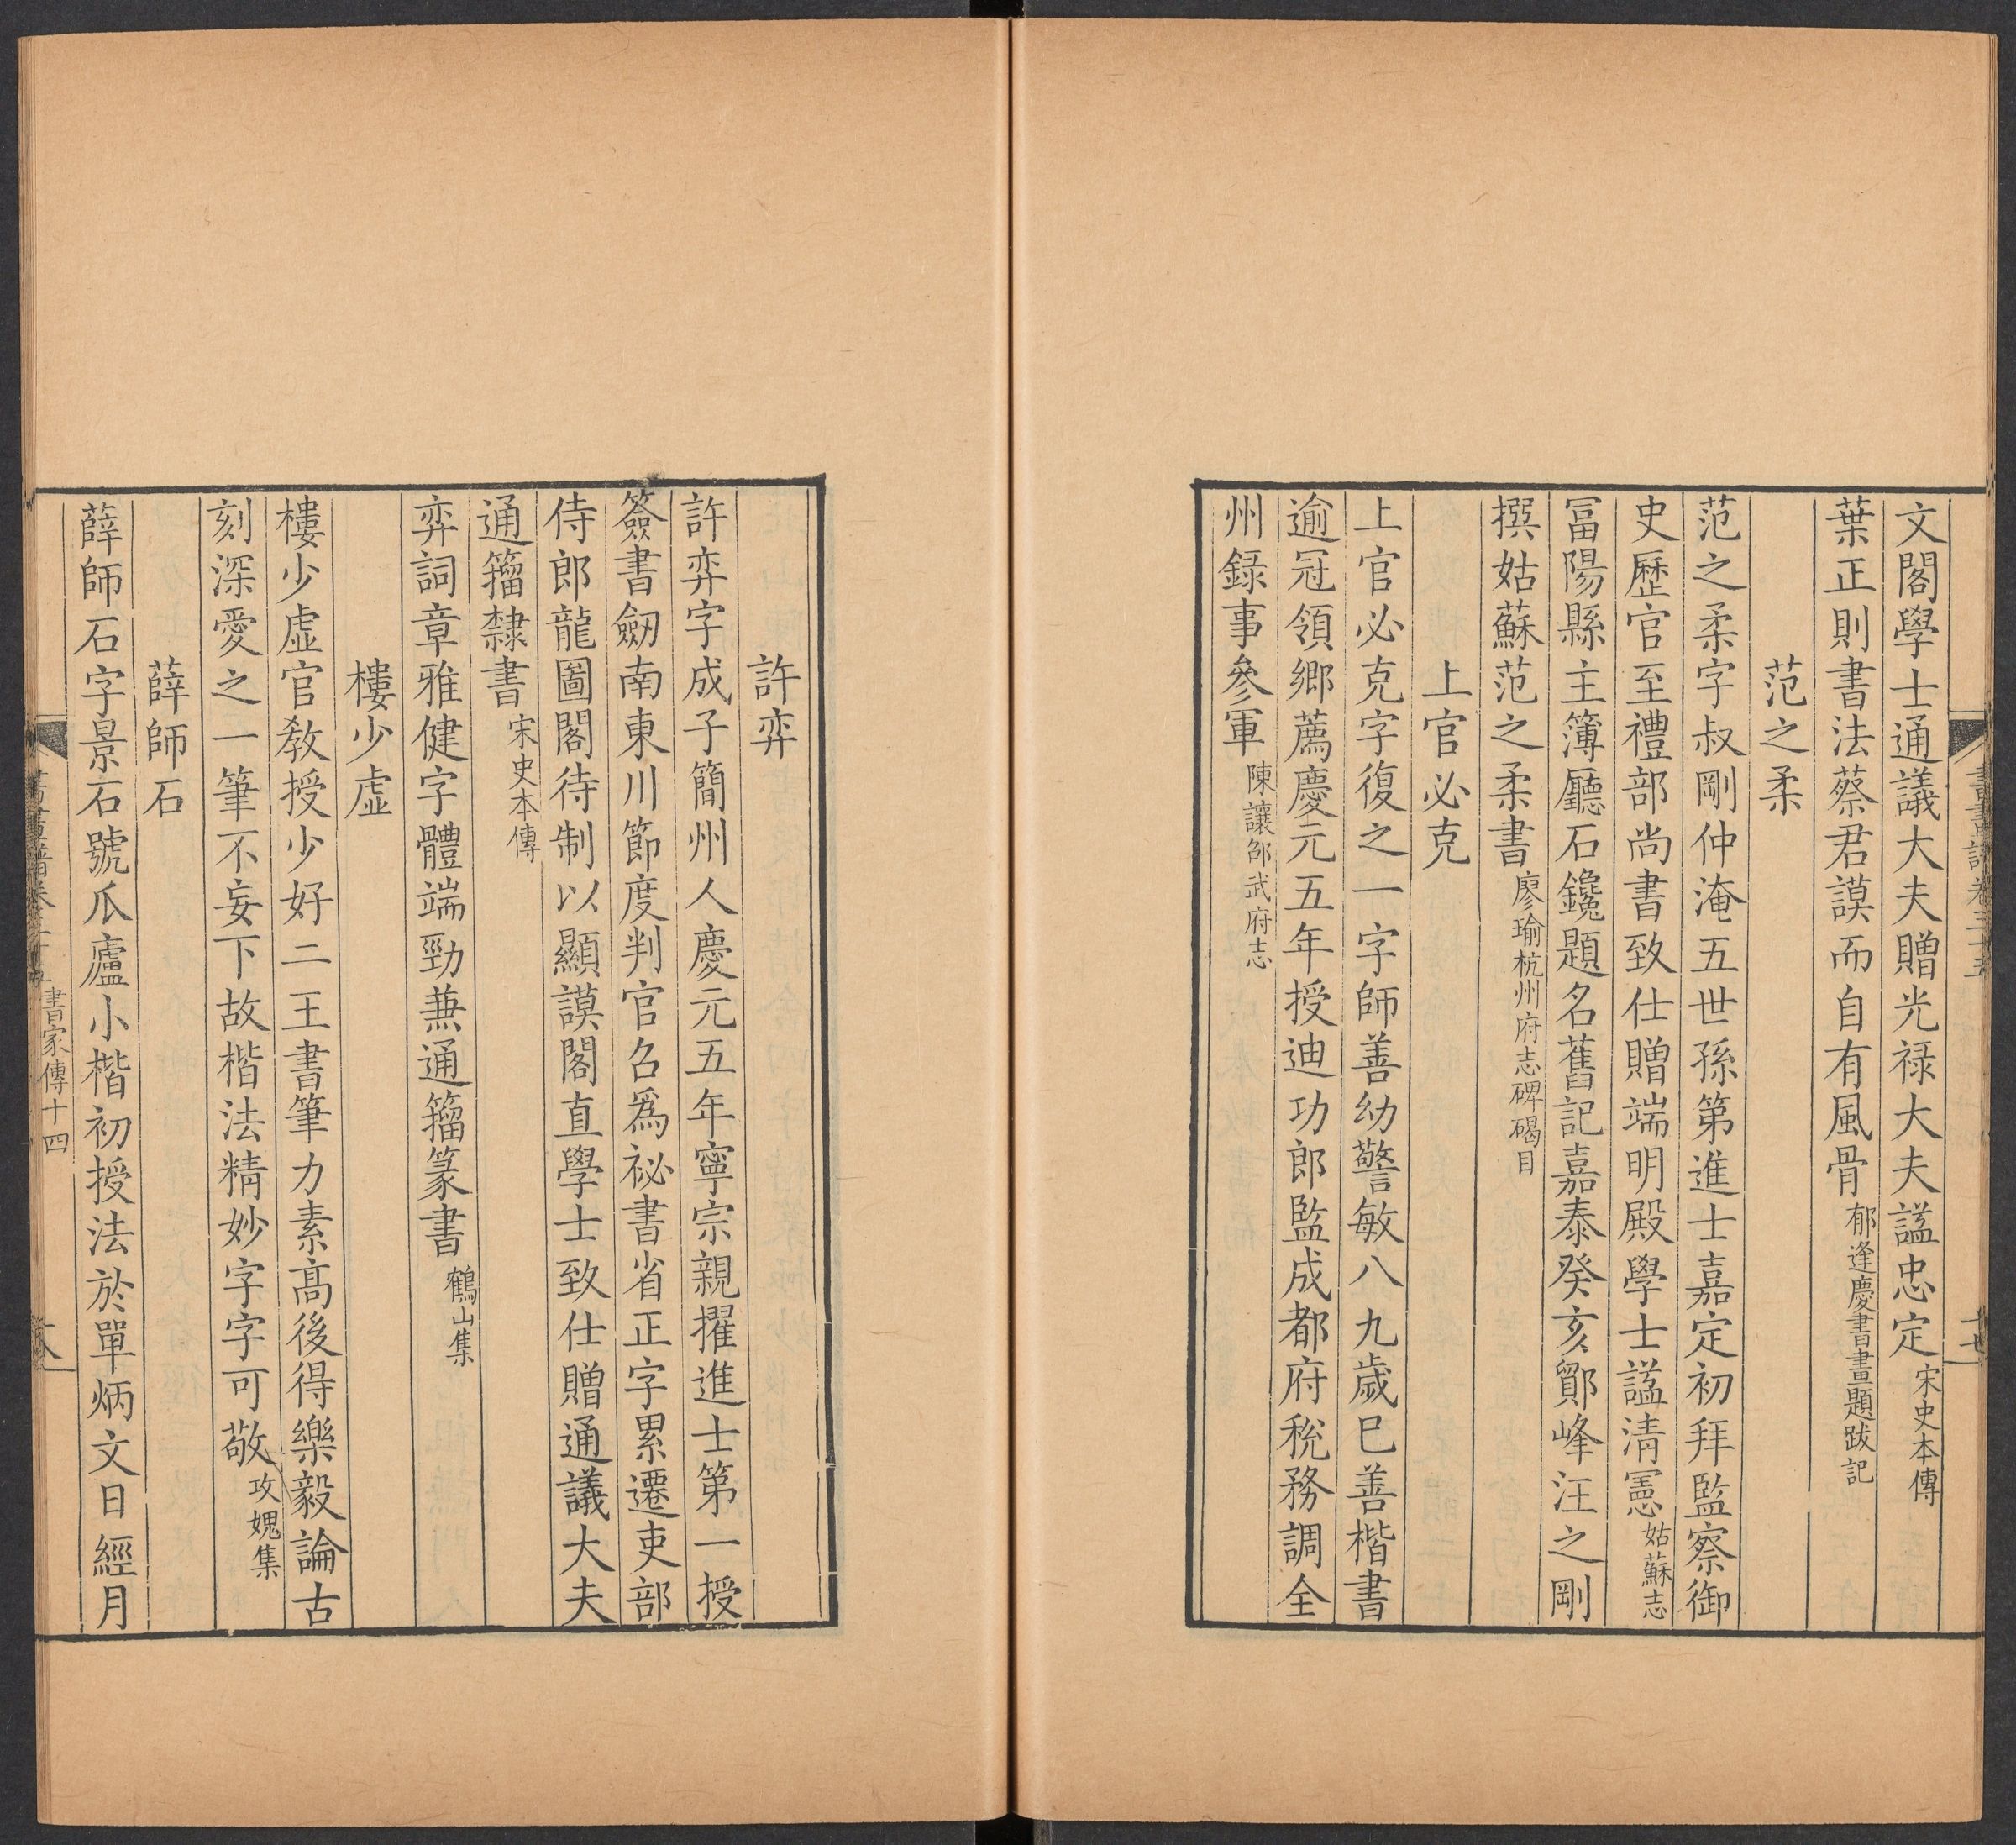 文閣學士通議大夫贈光禄大夫謚忠定宋史本傳
葉正則書法蔡君謨而自有風骨郁逢慶書畫題跋記
范之柔
范之柔字叔剛仲淹五世孫第進士嘉定初拜監察御
史歷官至禮部尚書致仕贈端明殿學士謚清憲姑蘇志
冨陽縣主簿廳石鑱題名舊記嘉泰癸亥鄮峰汪之剛
撰姑蘇范之柔書廖瑜杭州府志碑碣目
上官必克
上官必克字復之一字師善幼警敏八九歲巳善楷書
逾冠領鄉薦慶元五年授迪功郎監成都府稅務調全
州録事參軍陳讓邵武府志
許弈
許弈字成子簡州人慶元五年寧宗親擢進士第一授
簽書劒南東川節度判官召爲祕書省正字累遷吏部
侍郎龍圖閣待制以顯謨閣直學士致仕贈通議大夫
通籀隸書宋史本傳
弈詞章雅健字體端勁兼通籀篆書鶴山集
樓少虛
樓少虛官教授少好二王書筆力素高後得樂毅論古
刻深愛之一筆不妄下故楷法精妙字字可敬攻媿集
薛師石
薛師石字景石號瓜廬小楷初授法於單炳文日經月
書家傳十四